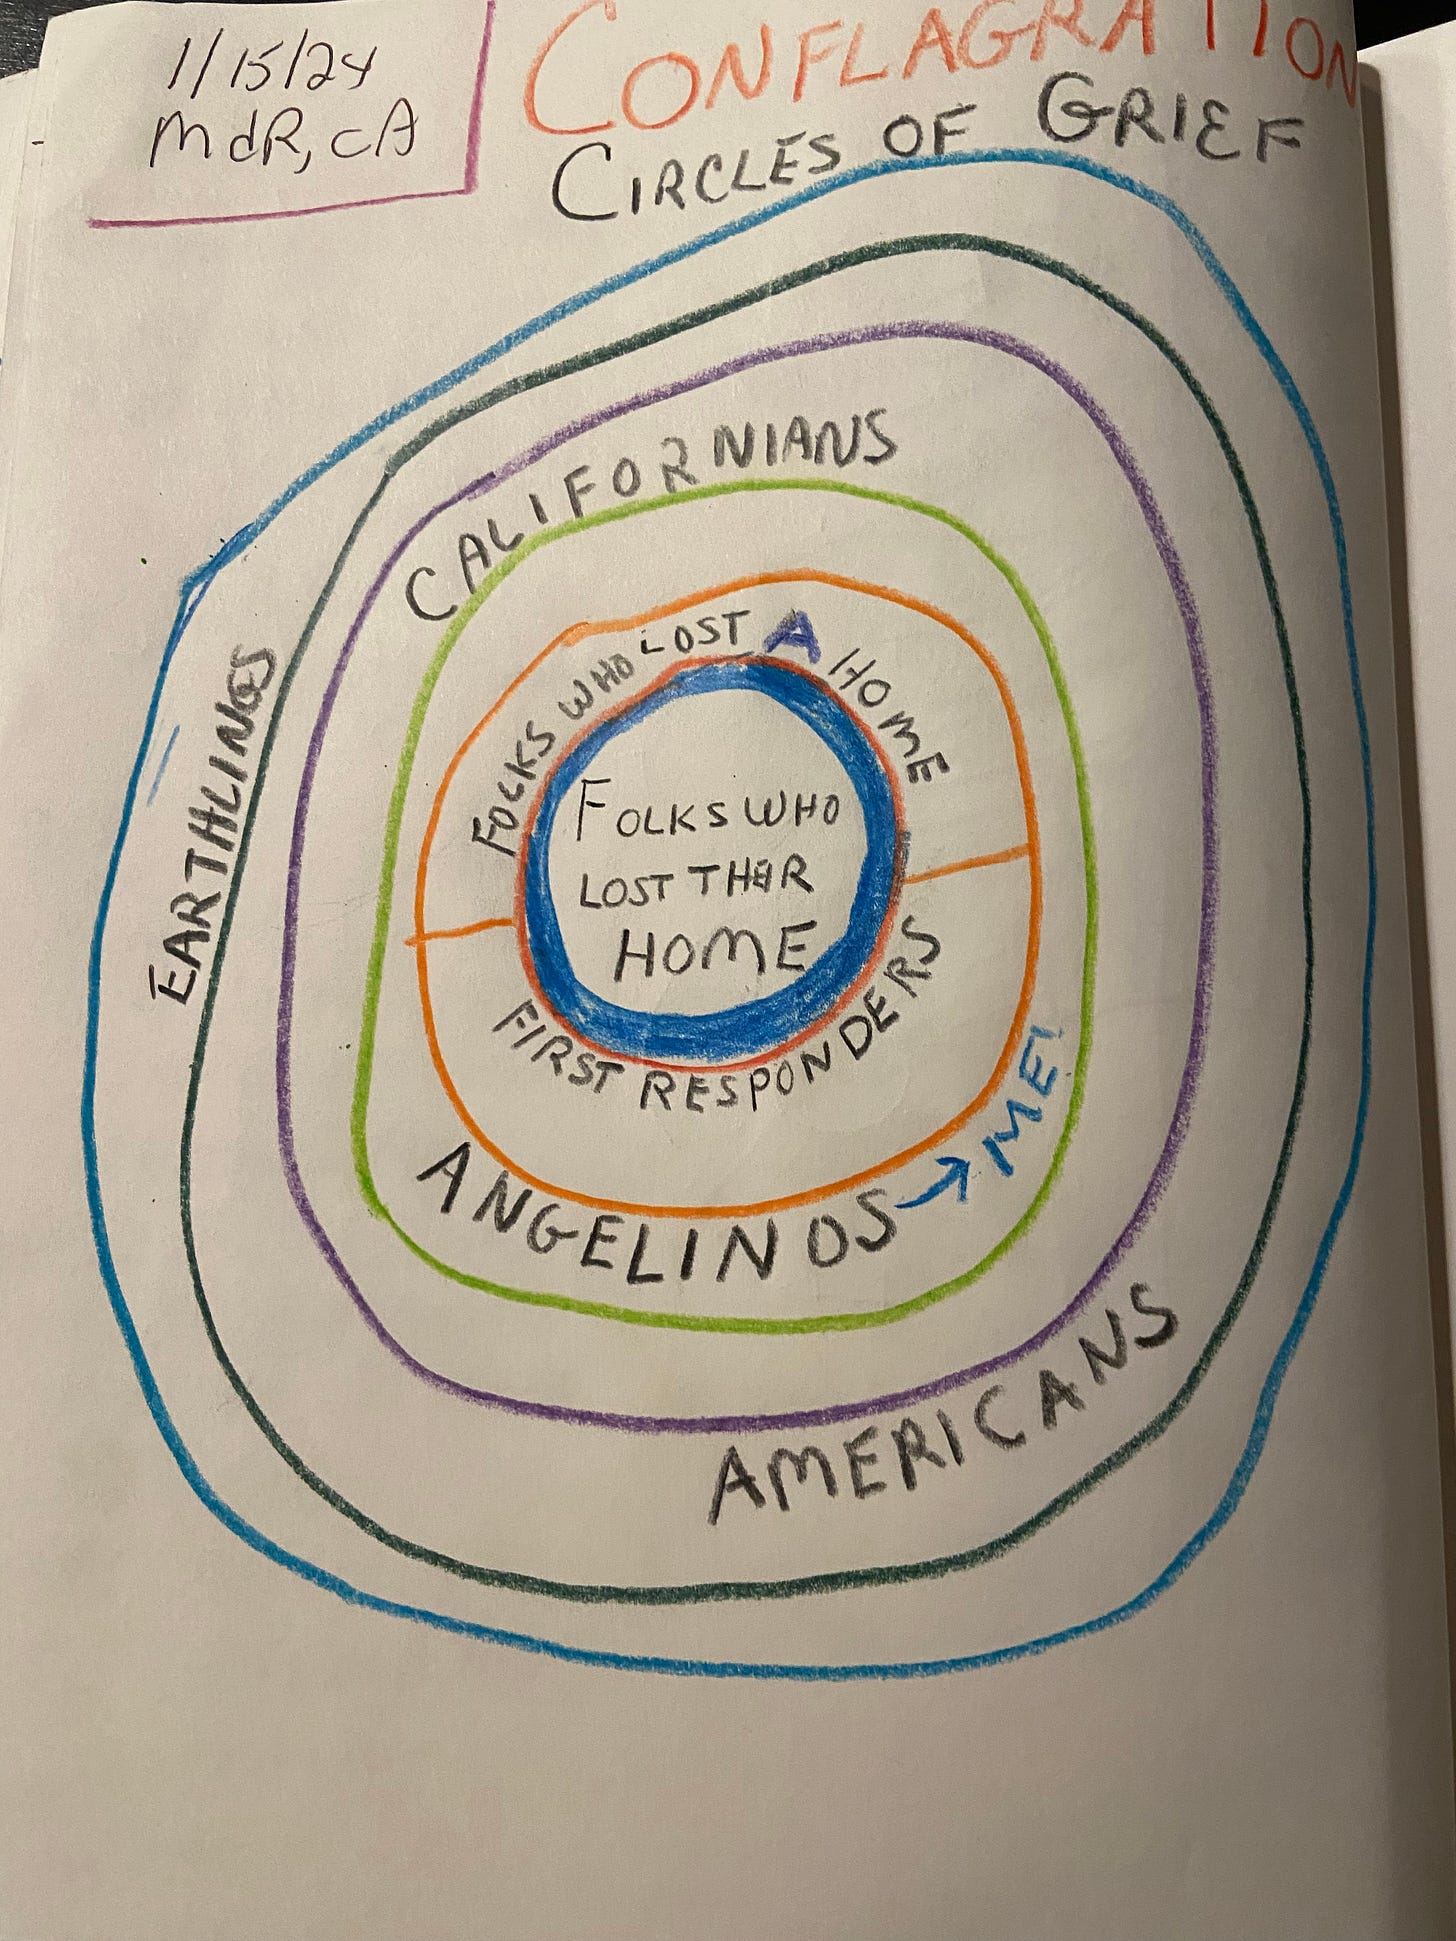 1/15/24
MdR, CA
CONFLAGRATION
CIRCLES OF GRIEF
CALIFORNIANS
FOLKS WHO LOST A HOME
EARTHLINGS
FOLKS WHO
LOST THEIR
HOME
FIRST RESPONDERS
ANGELINOS → ME!
AMERICANS